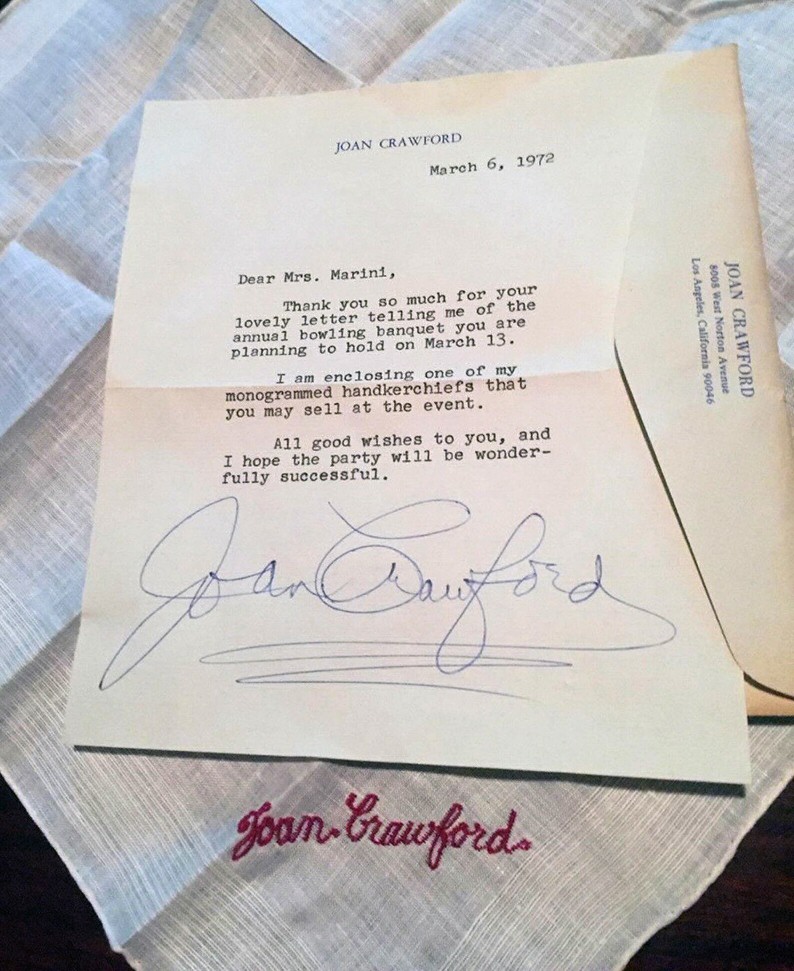 JOAN CRAWFORD
March 6, 1972
Dear Mrs. Marini,
Thank you so much for your
lovely letter telling me of the
annual bowling banquet you are
planning to hold on March 13.
I am enclosing one of my
monogrammed handkerchiefs that
you may sell at the event.
All good wishes to you, and
I hope the party will be wonder-
fully successful.
Joan Crawford
JOAN CRAWFORD
8008 West Norton Avenue
Los Angeles, California 90046
Joan. Crawford.